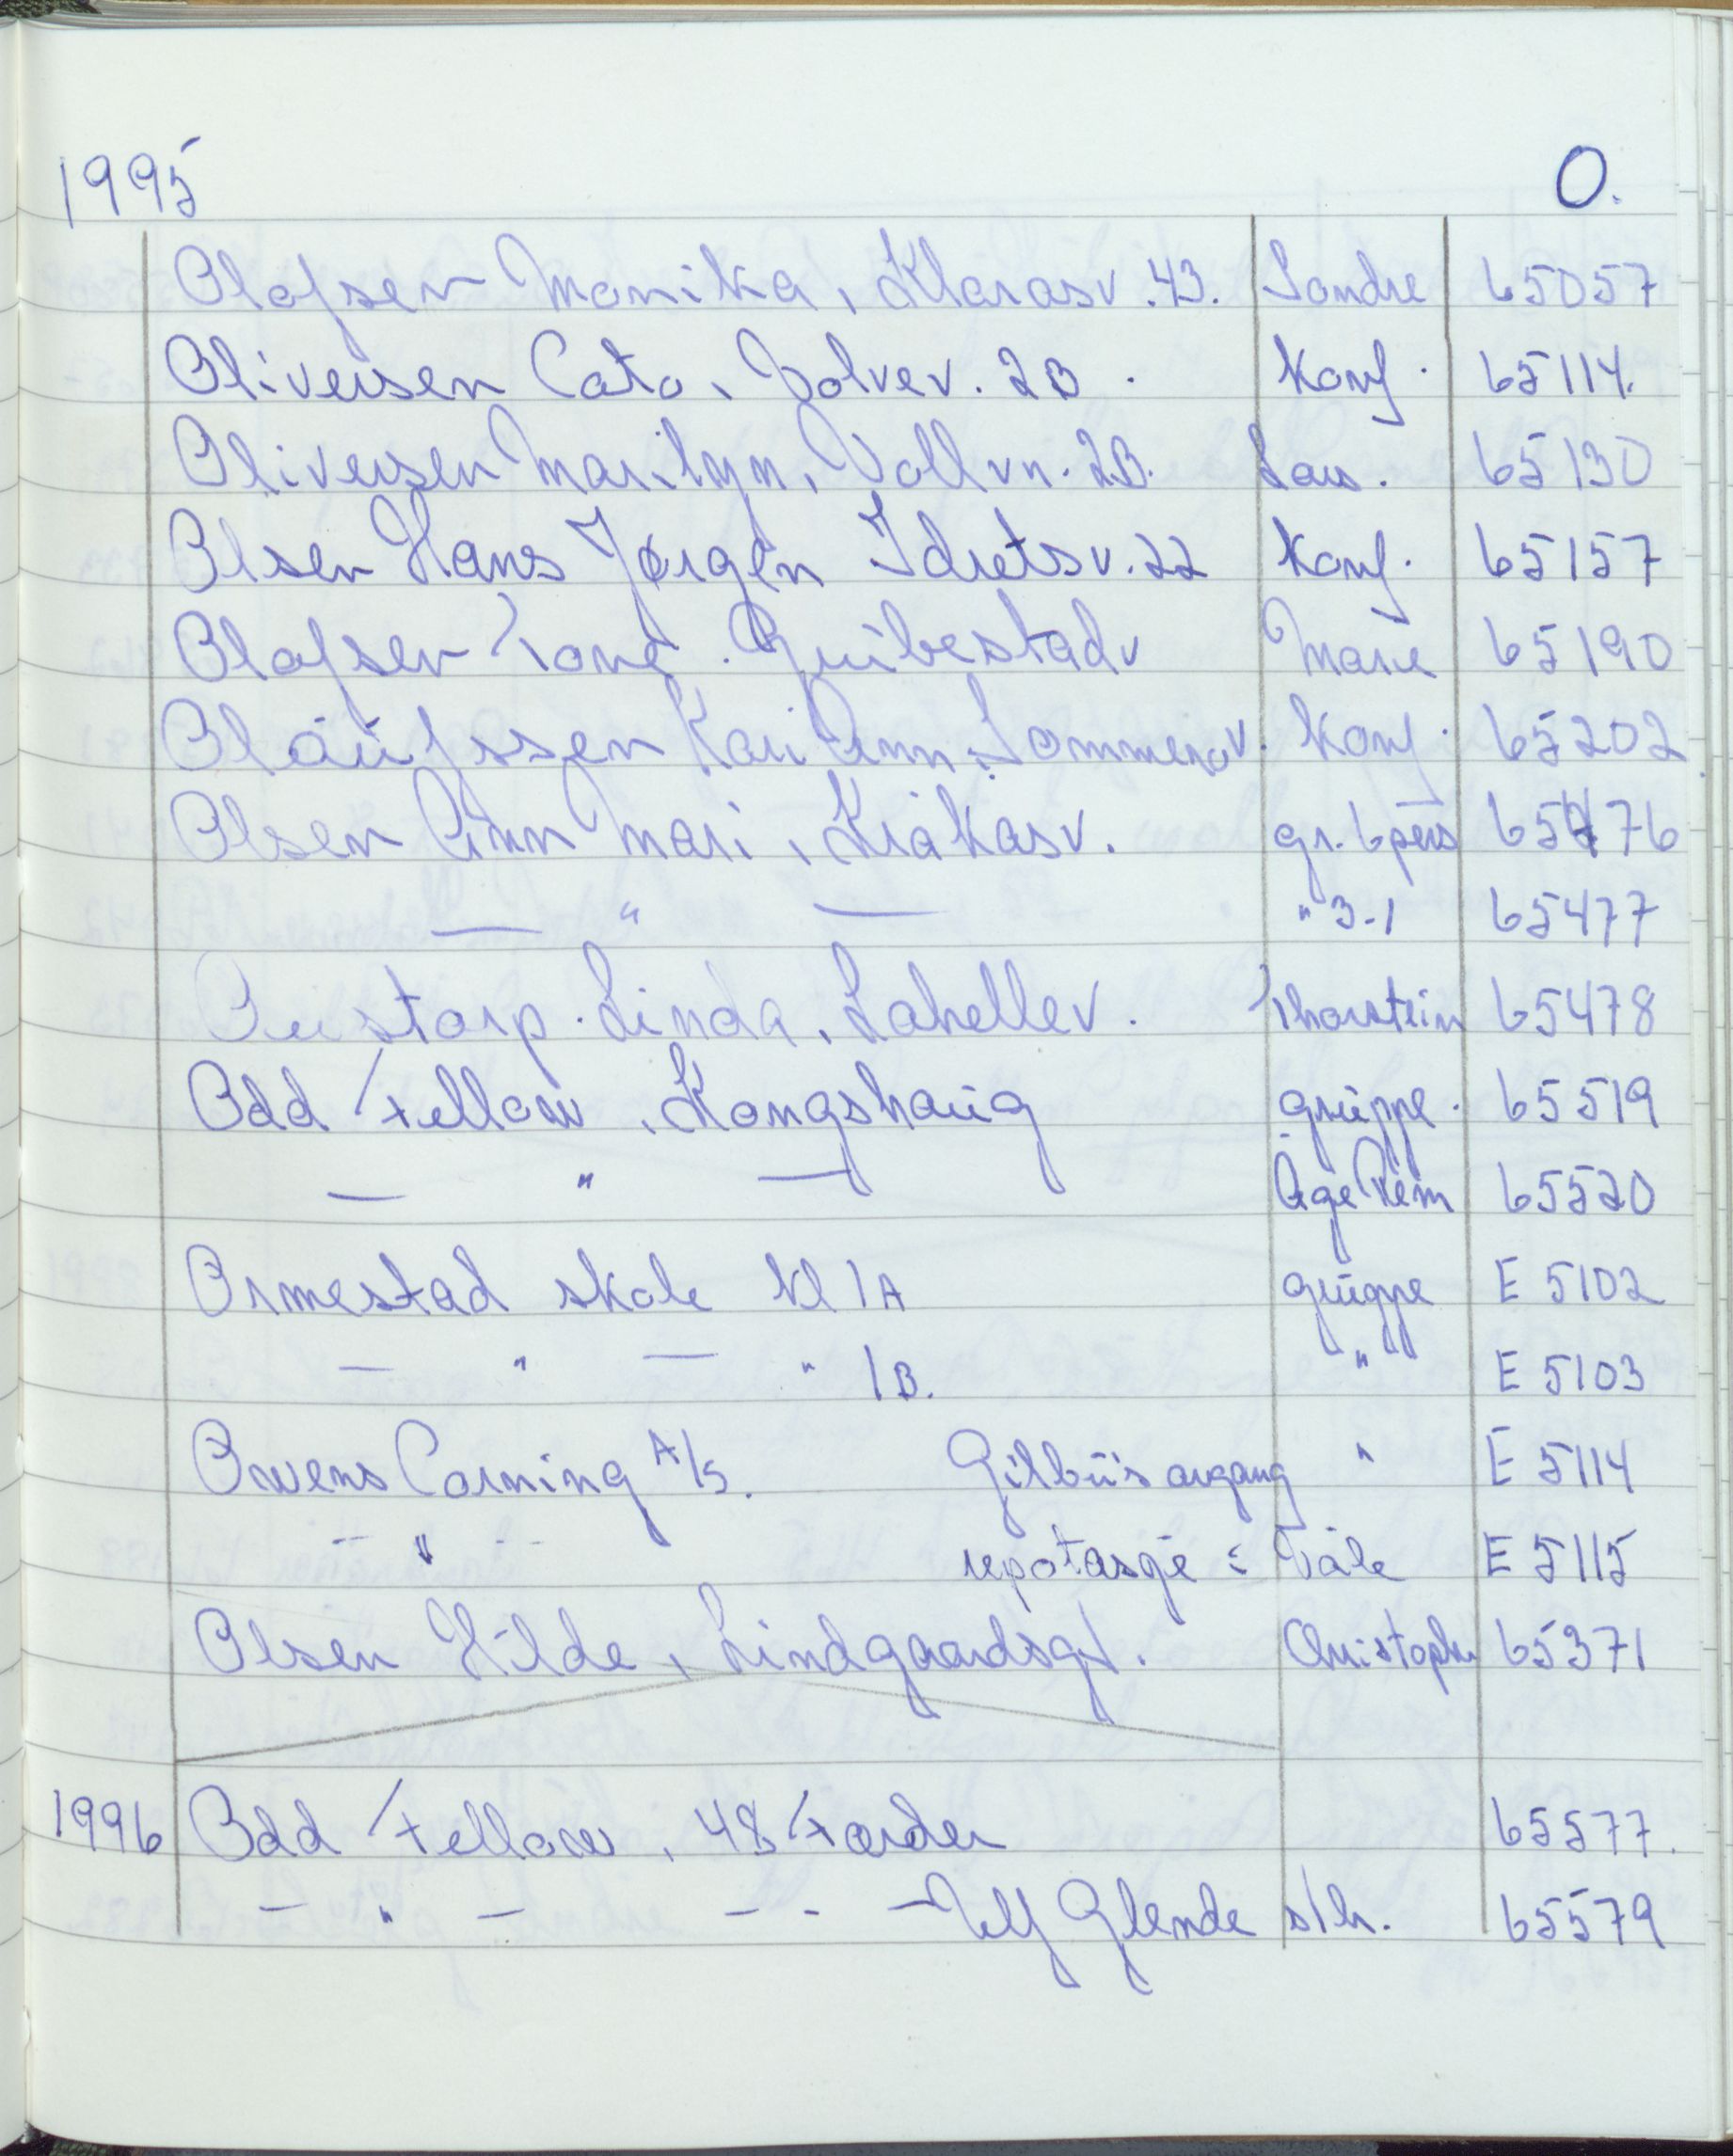 1995 O.
Olafsen Monika, Klarasv. 43. Sondre 65057
Oliversen Cato, Volvev. 2B. Konf. 65114.
Oliversen Marilyn, Vollvn. 2B. Lars. 65130
Olsen Hans Jørgen Idretsv. 22 Konf. 65157
Olafsen Tone. Marie 65190
Olaüfssen Kari Ann, Sommerov. Konf. 65202.
Olsen Ann Mari, Kråkåsv. gr. 6 pers 65476
— " — " 3-1 65477
Linda, Lahellev. Thorstein 65478
Odd Fellow, Kongshaug gruppe. 65519
— " — Åge Rem 65520
Ormestad skole kl 1A gruppe E 5102
— " — " 1B. " E 5103
Owens Corning A/S. argang " E 5114
-- " -- Våle E 5115
Olsen Hilde, Lindgaardsgt. Christopher 65371
1996 Odd Fellow, 48 Færder 65577.
— " — - - — Ulf Glende s/h. 65579